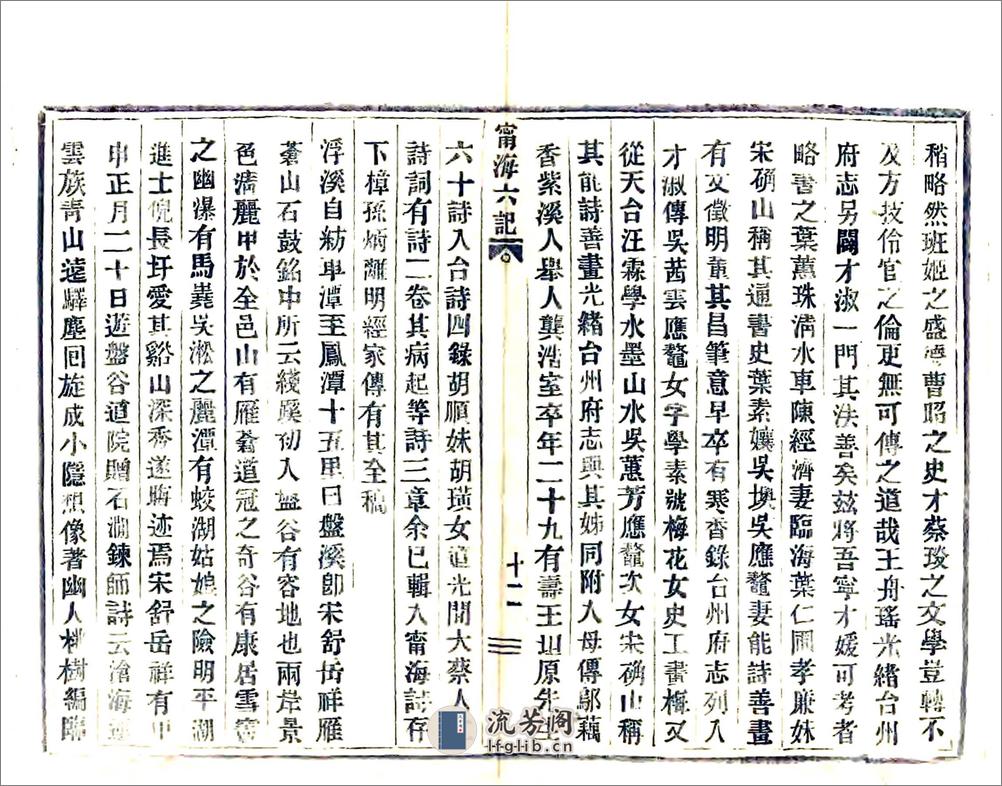 稍略然班姬之盛濟曹昭之史才蔡琰之文學豈轉不
及方技伶官之倫更無可傳之道哉王舟瑤光緒台州
府志另闢才淑一門其法善矣茲將吾寧才媛可考者
略書之葉薰珠淸水車陳經濟妻臨海葉仁圃孝廉妹
宋确山稱其通書史葉素孃吳墺吳應鼇妻能詩善畫
有文徵明董其昌筆意早卒有寒香錄台州府志列入
才淑傳吳茜雲應鼇女字學素號梅花女史工書梅又
從天台汪霖學水墨山水吳薰芳應鼇次女宋确山稱
其能詩善畫光緒台州府志與其姊同附入母傳鄔藕
香紫溪人舉人龔浩室卒年二十九有壽王山原先生
甯海六記
十二
六十詩入台詩四錄胡順妹胡璜女道光間大蔡人
詩詞有詩二卷其病起等詩三章余已輯入甯海詩存
下樟孫炳離明經家傳有其全稿
浮溪自紡車潭至鳳潭十五里曰盤溪卽宋舒岳祥雁
蒼山石鼓銘中所云綫蹊初入盤谷有容地也兩岸景
色淸麗甲於全邑山有雁蒼道冠之奇谷有康居雪竇
之幽瀑有馬嶤吳淞之麗潭有蛟湖姑娘之險明平湖
進士倪長圩愛其谿山深秀遂晦迹焉宋舒岳祥有甲
申正月二十日遊盤谷道院贈石澗鍊師詩云滄海
雲族靑山遠驛塵回旋成小隱想像著幽人桃樹編
流芳阁
lfglib.cn